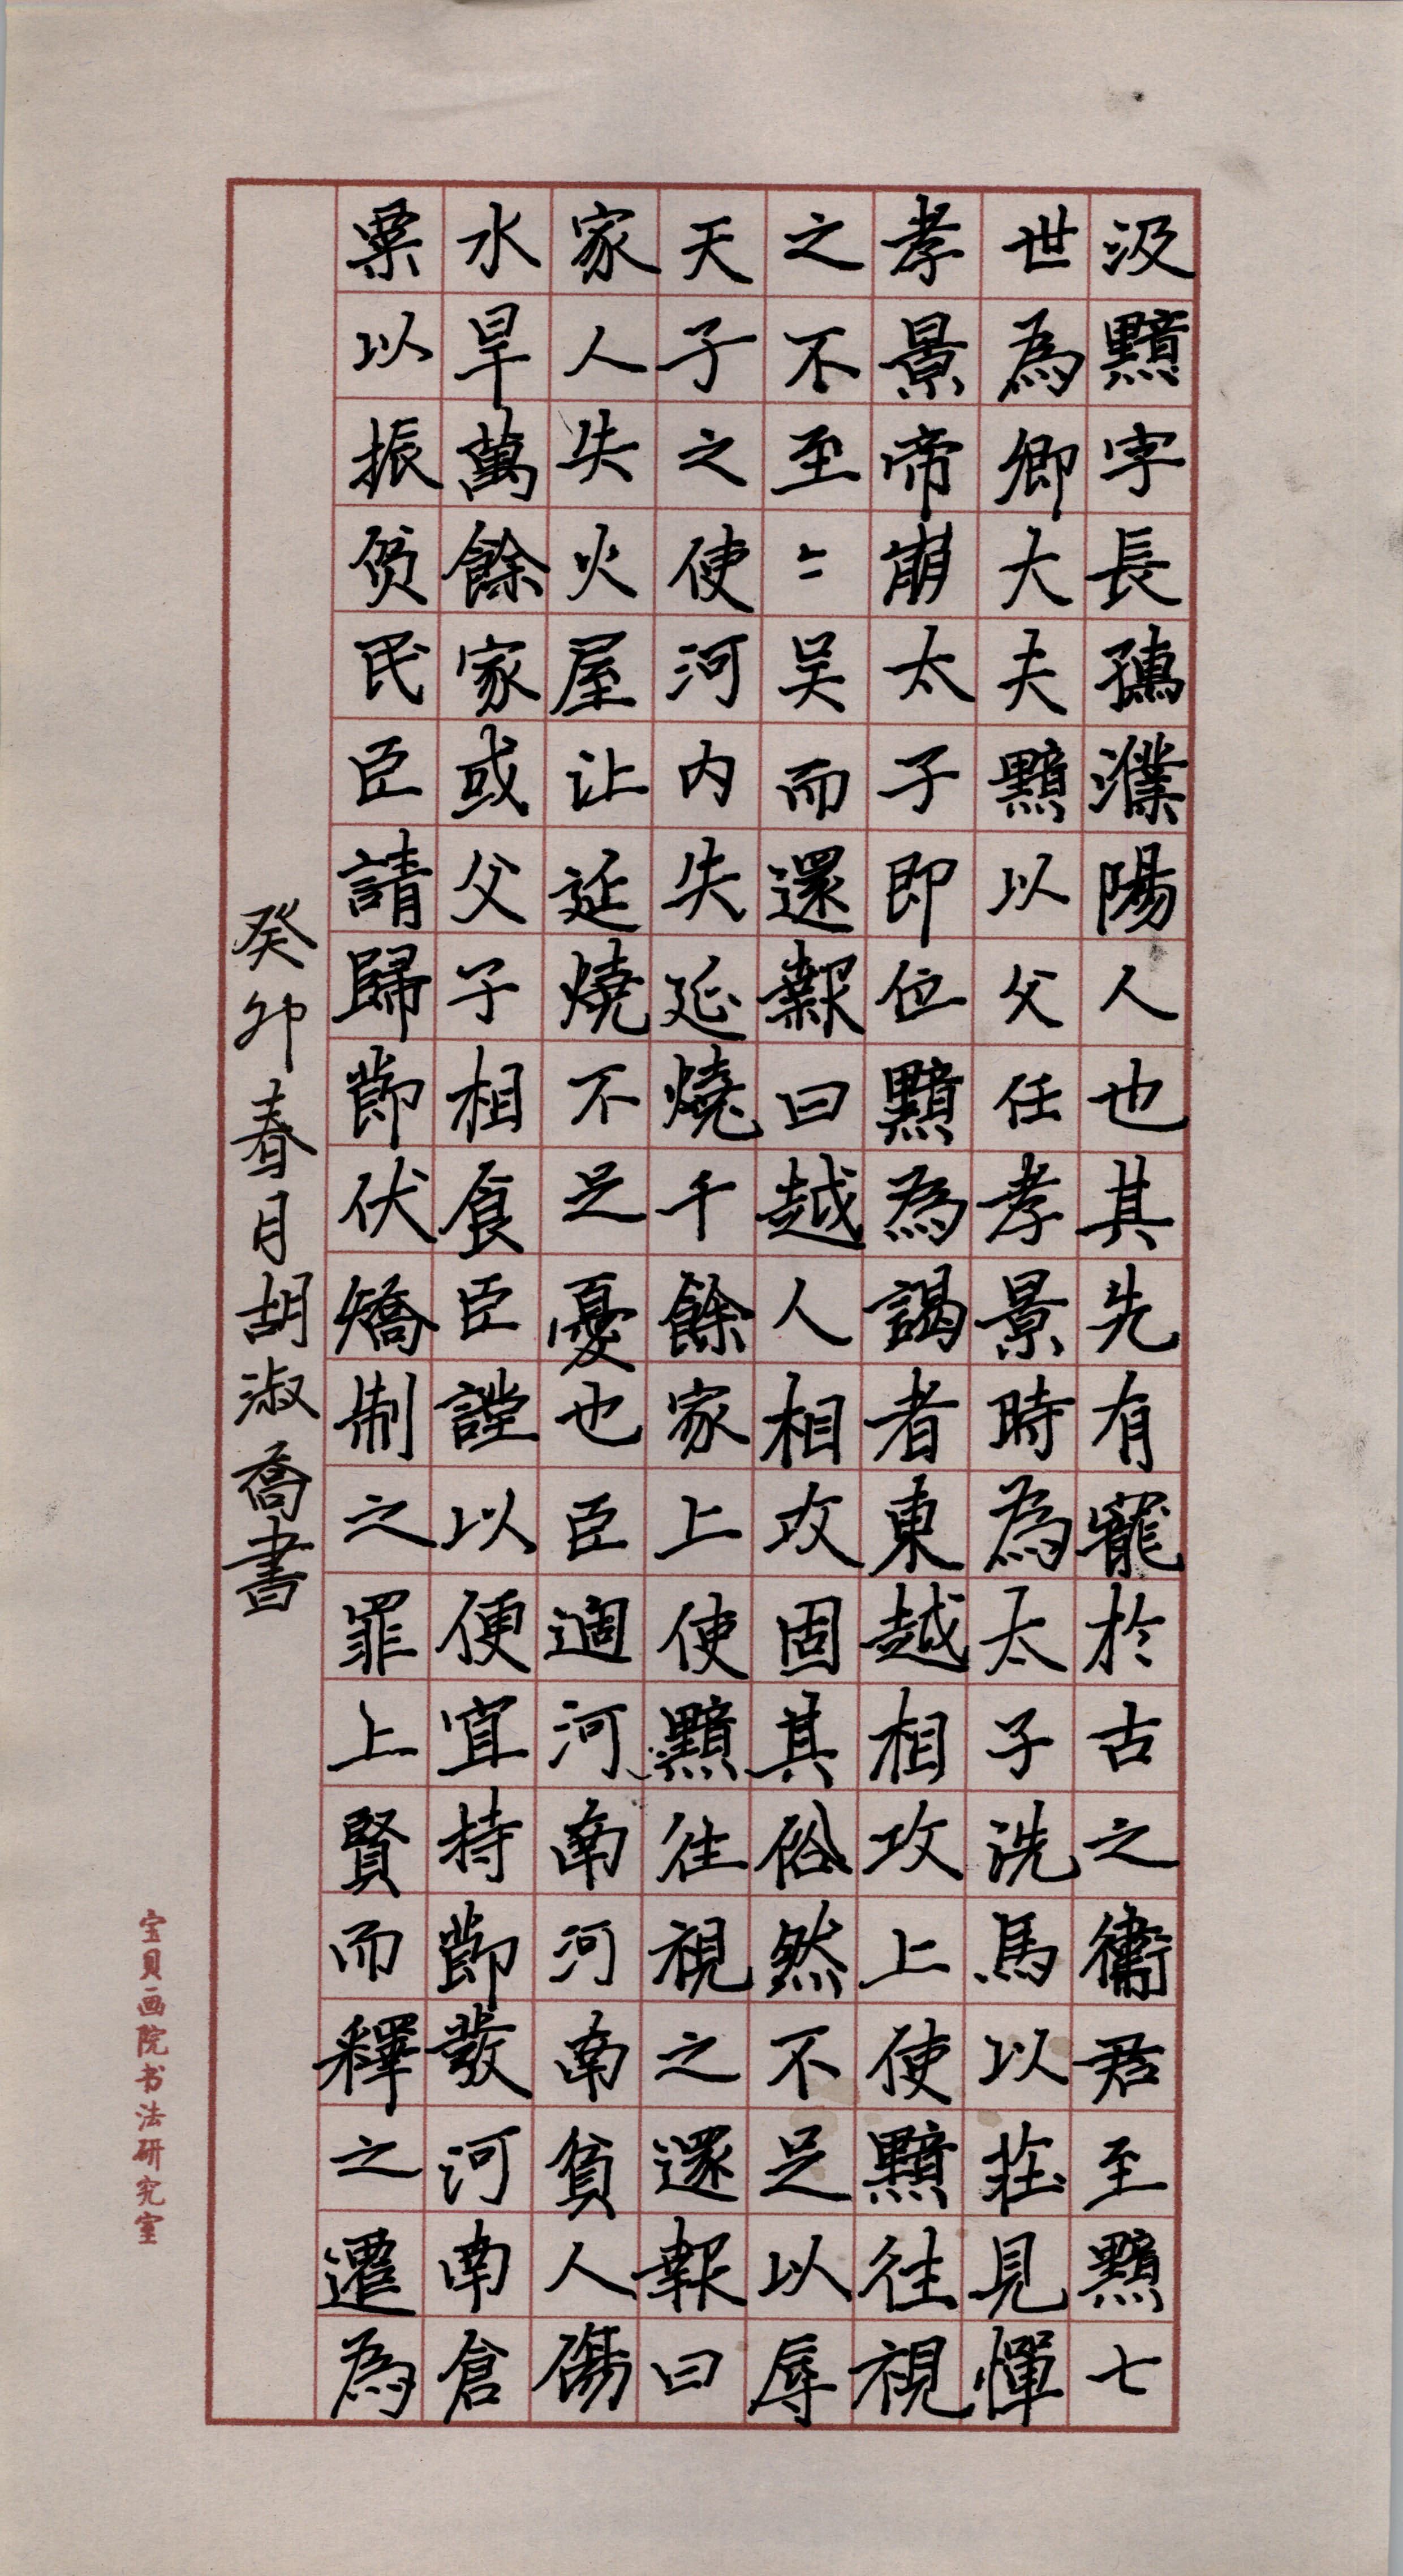 汲黯字長孺濮陽人也其先有寵於古之衛君至黯七
世為卿大夫黯以父任孝景時為太子洗馬以莊見憚
孝景帝崩太子即位黯為謁者東越相攻上使黯往視
之不至〻吳而還報曰越人相攻固其俗然不足以辱
天子之使河内失延燒千餘家上使黯往視之還報曰
家人失火屋让延燒不足憂也臣過河南河南貧人傷
水旱萬餘家或父子相食臣謹以便宜持節發河南倉
粟以振貧民臣請歸節伏矯制之罪上賢而釋之遷為
癸卯春月胡淑喬書
宝贝画院书法研究室